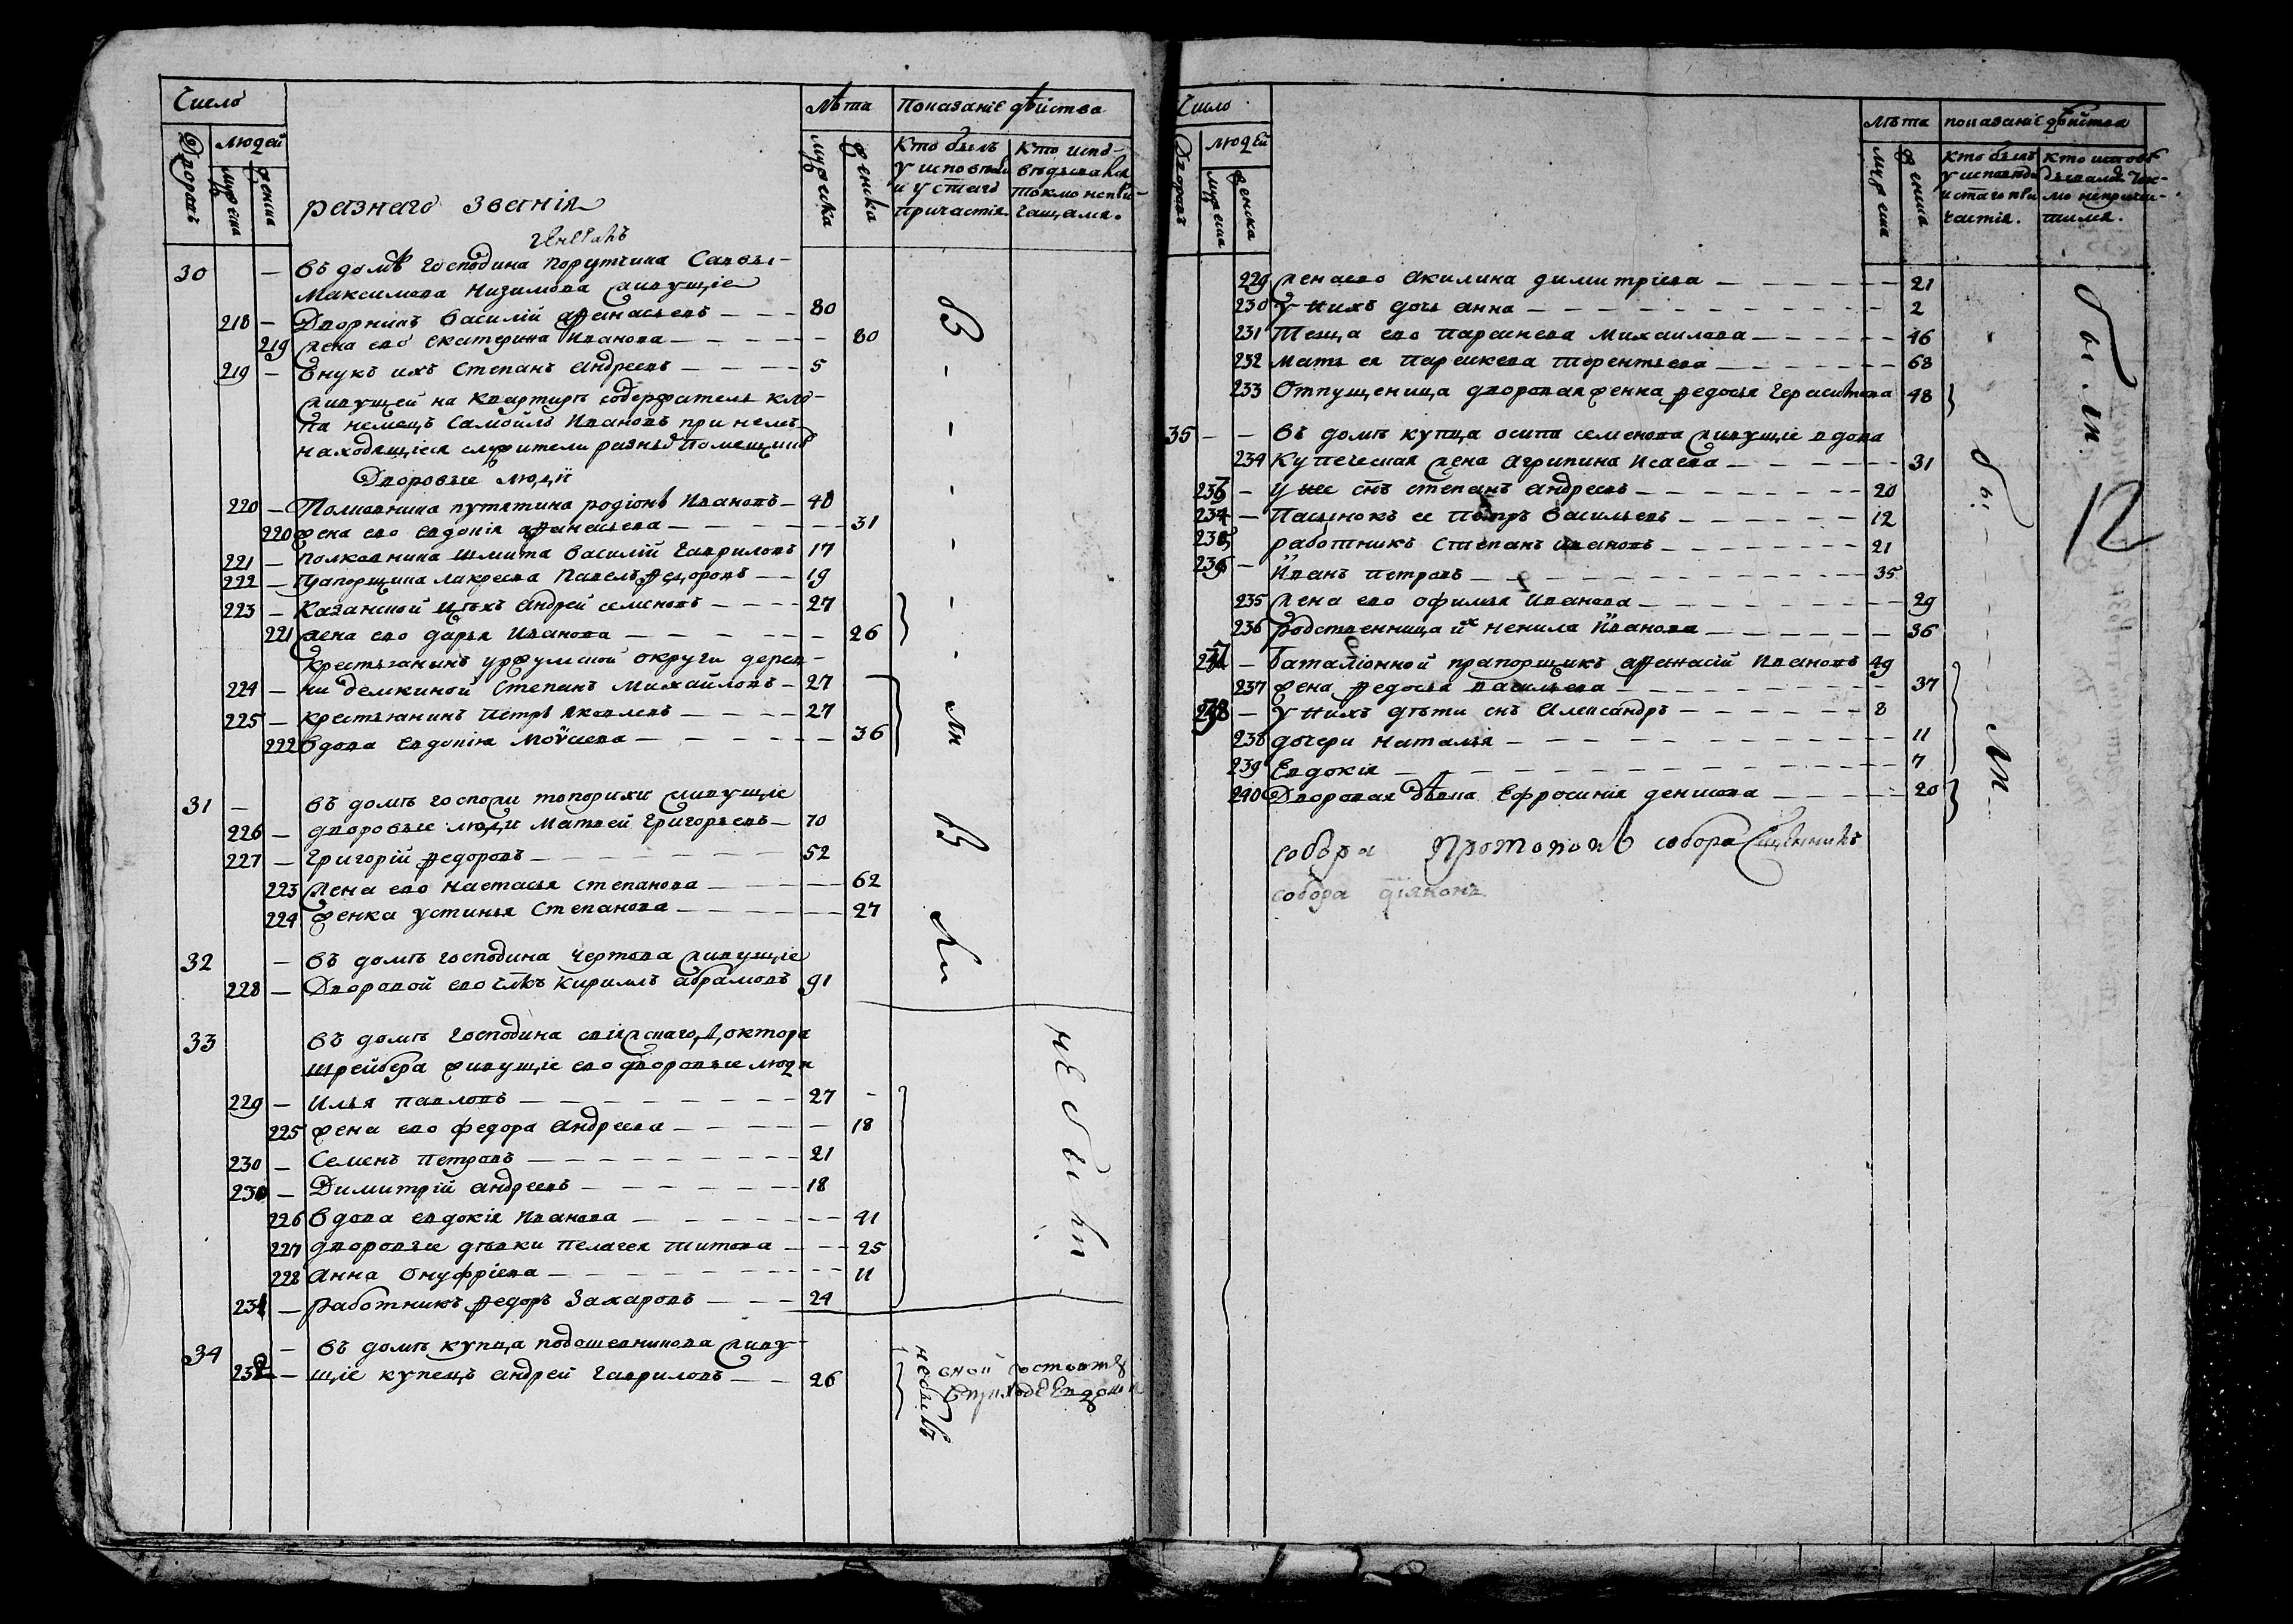 Число Лѣта Показаніе дѣйства
Дворовъ людей мужеска женска мужеска женска Кто былъ у исповѣди и у стаго причастія. Кто исповѣдывался токмо
разнаго званія
30 — Въ домѣ господина порутчика Саввы
Максимова Низимова живущіе
218 — Дворникъ Василій Афанасьевъ — — — 80
219 жена ево Екатерина Иванова — — — 80
219 — Внукъ ихъ Степанъ Андреевъ — — — 5
живущей на квартирѣ содержатель
немецъ Самойло Ивановъ при немъ
находящіеся служители разныхъ помещиковъ
Дворовые люди
220 — Полковника путятина родіонъ Ивановъ — 48
220 жена ево Евдокія Афанасьева — — — 31
221 — полковника шмита Василій Гавриловъ 17
222 — Прапорщика Павелъ Федоровъ — — 19
223 — Казанской Андрей семеновъ — — — 27
221 жена ево дарья Иванова — — — 26
крестьянинъ уржумской округи дерев-
224 — ни демкиной Степанъ Михайловъ — 27
225 — крестьянинъ Петръ Яковлевъ — — — 27
222 Вдова Евдокія Моѵсеева — — — 36
31 — въ домѣ живущіе
226 — дворовые люди Матвей Григорьевъ — 70
227 — Григорій Федоровъ — — — 52
223 жена ево настасья степанова — — — 62
224 женка устинья Степанова — — — 27
32 — въ домѣ господина Чертова живущіе
228 — Дворовой ево члкъ Кириллъ Абрамовъ 91
33 въ домѣ Господина Доктора
шрейбера живущіе ево дворовые люди
229 — Илья павловъ — — — 27
225 жена ево федора Андреева — — — 18
230 — Семенъ Петровъ — — — 21
230 — Димитрій Андреевъ — — — 18
226 Вдова евдокія Иванова — — — 41
227 дворовые дѣвки Пелагея титова — — 25
228 Анна Онуфріева — — — 11
231 — работникъ Федоръ Захаровъ — — — 24
34 — въ домѣ купца подошевникова живу-
232 — щіе купецъ Андрей Гавриловъ — — 26
небылъ
небыли
Число Лѣта показаніе дѣйства
Дворовъ людей мужеска женска мужеска женска кто былъ у исповѣди и стаго причастія.
229 жена ево Акилина димитріева — — — 21
230 у нихъ дочь анна — — — 2
231 Теща ево Параскева Михаилова — — — 46
232 Мать ея Параскева Терентьева — — — 68
233 Отпущеница дворовая женка Федосья Герасимова 48
35 — — въ домѣ купца осипа семенова живущіе вдова
234 Купеческая жена Агрипина Исаева — — — 31
236 — у нее снъ степанъ Андреевъ — — — 20
237 — Пасынокъ ее Петръ Васильевъ — — — 12
238 работникъ Степанъ Ивановъ — — — 21
239 — Иванъ петровъ — — — 35
235 жена ево офимья Иванова — — — 29
236 родственница их ненила Иванова — — — 36
— Баталіонной прапорщикъ Афанасій Ивановъ 49
237 жена Федосья васильева — — — 37
238 — у нихъ дѣти снъ Александръ — — — 8
238 дочери наталья — — — 11
239 Евдокія — — — 7
240 Дворовая дѣвка Ефросинія денисова — — — 20
собора Протопопъ собора Сщенникъ
собора діяконъ